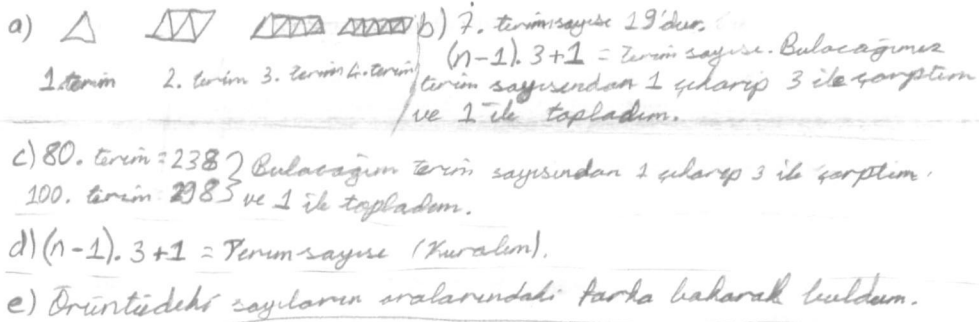 a)
1. terim 2. terim 3. terim 4. terim
b) 7. terim sayısı 19'dur.
(n-1).3+1 = Terim sayısı. Bulacağımız
terim sayısından 1 çıkarıp 3 ile çarptım
ve 1 ile topladım.
c) 80. terim = 238 } Bulacağım terim sayısından 1 çıkarıp 3 ile çarptım.
100. terim 298 } ve 1 ile topladım.
d) (n-1).3+1 = Terim sayısı (Kuralım).
e) Örüntüdeki sayıların aralarındaki farka bakarak buldum.